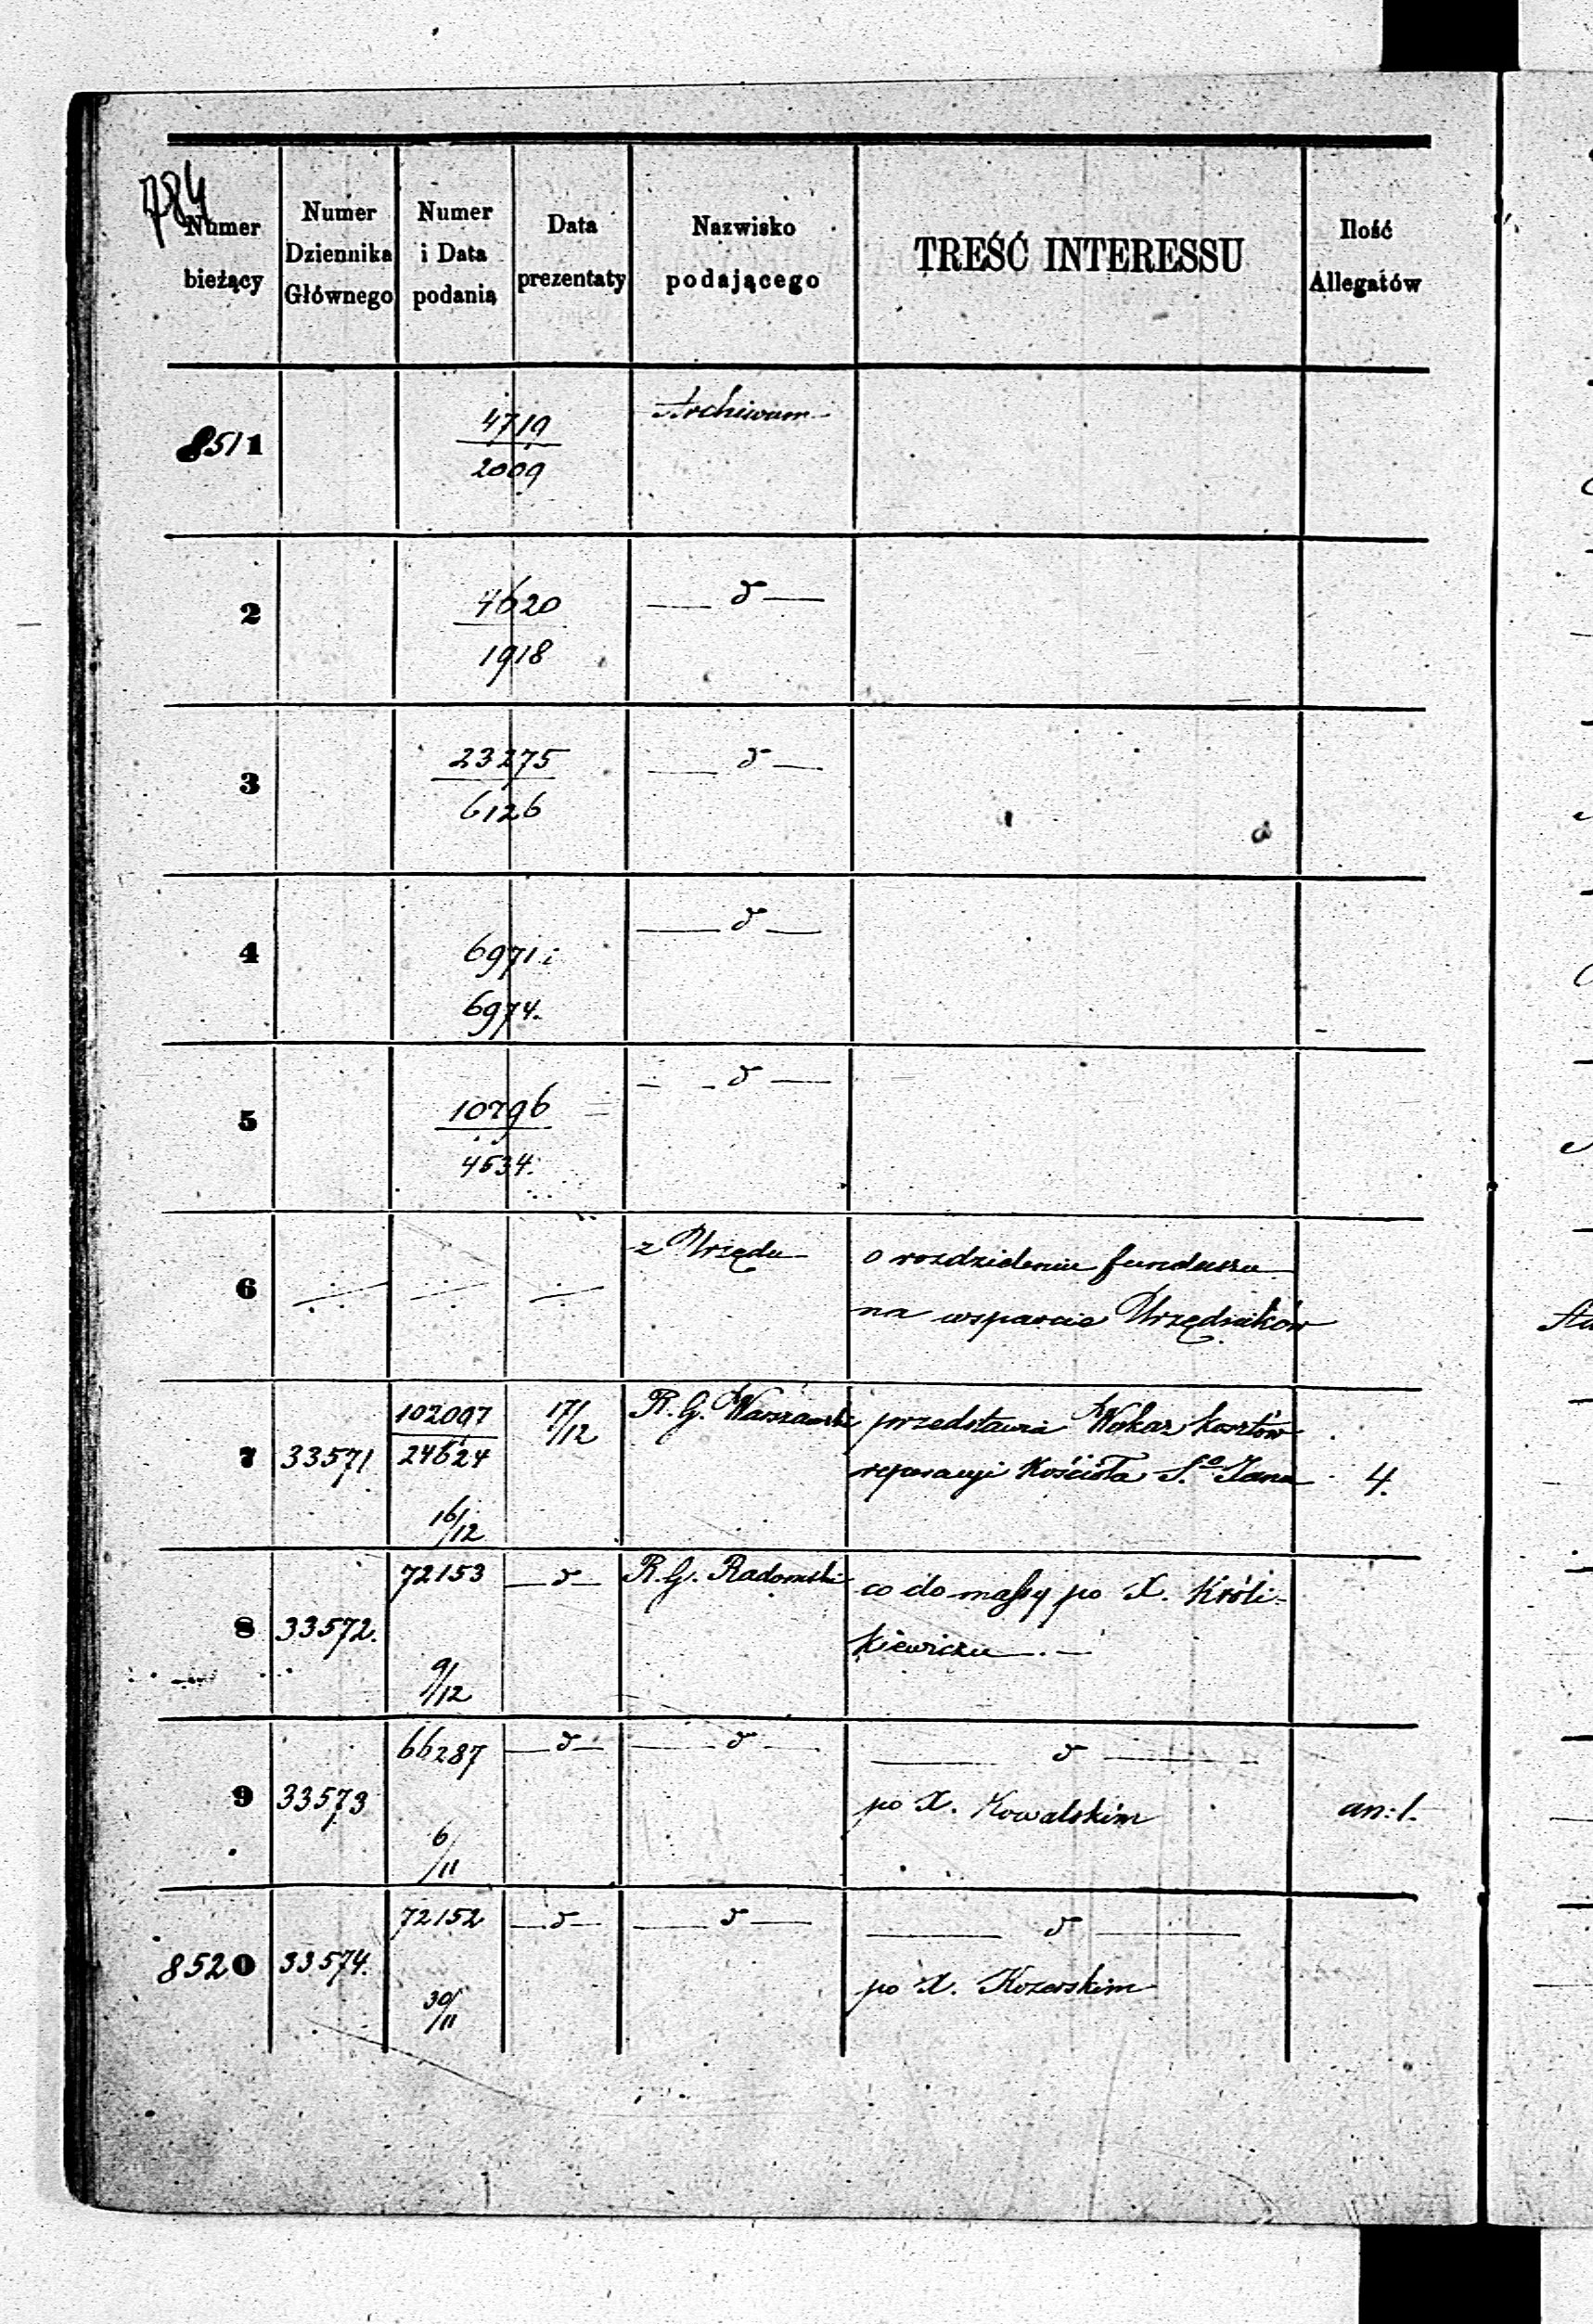 784
Numer bieżący
Numer Dziennika Głównego
Numer i Data podania
Data prezentaty
Nazwisko podającego
TREŚĆ INTERESSU
Ilość Allegatów
8511 4719 Archiwum
2009
2 4620 — d —
1918
3 23275 — d —
6126
4 — d —
6971 i
6974.
5 10796 — d —
4534.
6 z Urzędu o rozdzieleniu funduszu
na wsparcie Urzędników
7 33571 102097 17/12 R. G. Warszawski przedstawia Wykaz kosztów
24624 reparacyi Kościoła S.go Jana 4.
16/12
8 33572. 72153 — d — R. G. Radomski co do massy po X. Króli-
kiewiczu —
9/12
9 33573 66287 — d — — d — — d —
po X. Kowalskim an: 1.
6/11
8520 33574. 72152 — d — — d — — d —
po X. Kozerskim
30/11